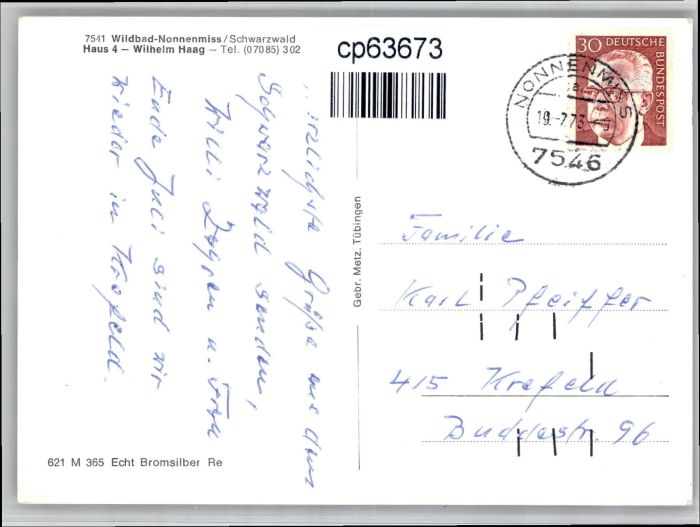 7541 Wildbad-Nonnenmiss/Schwarzwald
Haus 4 – Wilhelm Haag – Tel. (07085) 302
cp63673
30 DEUTSCHE
BUNDESPOST
NONNENMISS
19.-7.73-
7546
Grüße aus dem
Schwarzwald senden,
Willi u. Frau
Ende Juli sind wir
wieder in Krefeld.
Gebr. Metz, Tübingen
Familie
Karl Pfeiffer
415 Krefeld
Buddestr. 96
621 M 365 Echt Bromsilber Re